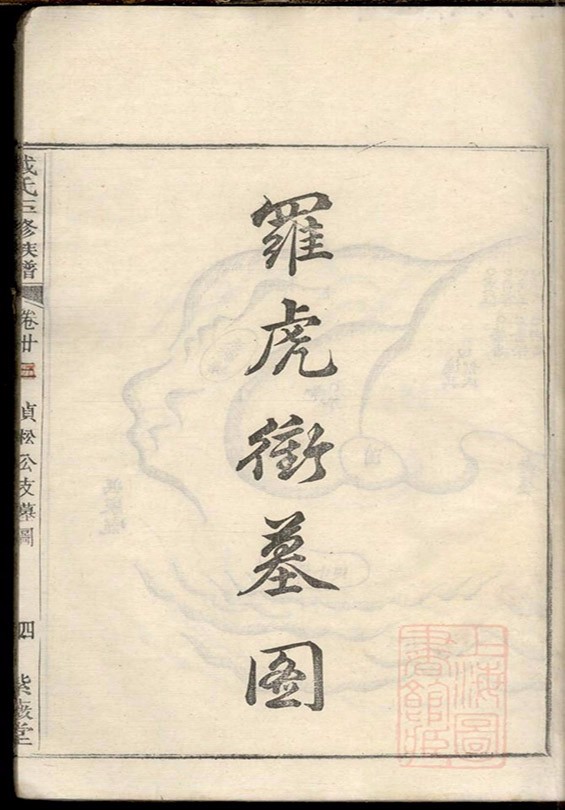 羅虎衝墓图
氏三修族譜
卷廿三
貞松公支墓圖
四
紫巖堂
上海圖
書館藏